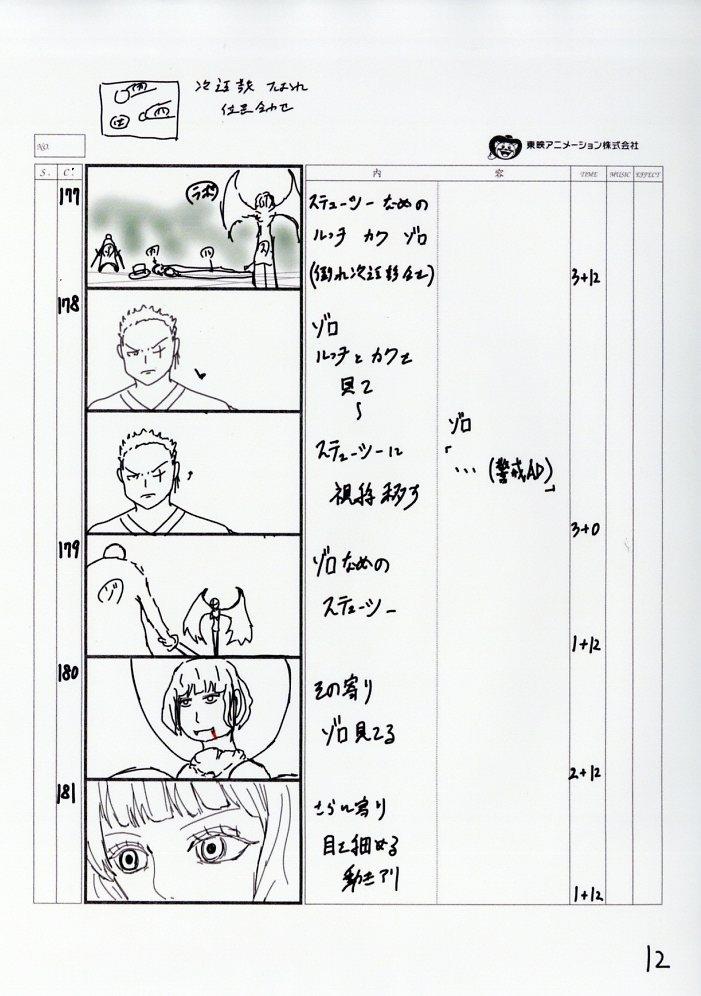 次話数 たおれ
位置合わせ
NO.
東映アニメーション株式会社
S. C. 内 容 TIME MUSIC EFFECT
177
ラボ
ステューシー なめの
ルッチ カク ゾロ
(倒れ次話数合せ)
3+12
178
ゾロ
ルッチとカクを
見て
ステューシーに
視線移す
ゾロ
「
… (警戒AD)
」
3+0
179
ゾ
ゾロなめの
ステューシー
1+12
180
その寄り
ゾロ見てる
2+12
181
さらに寄り
目を細める
動きアリ
1+12
12